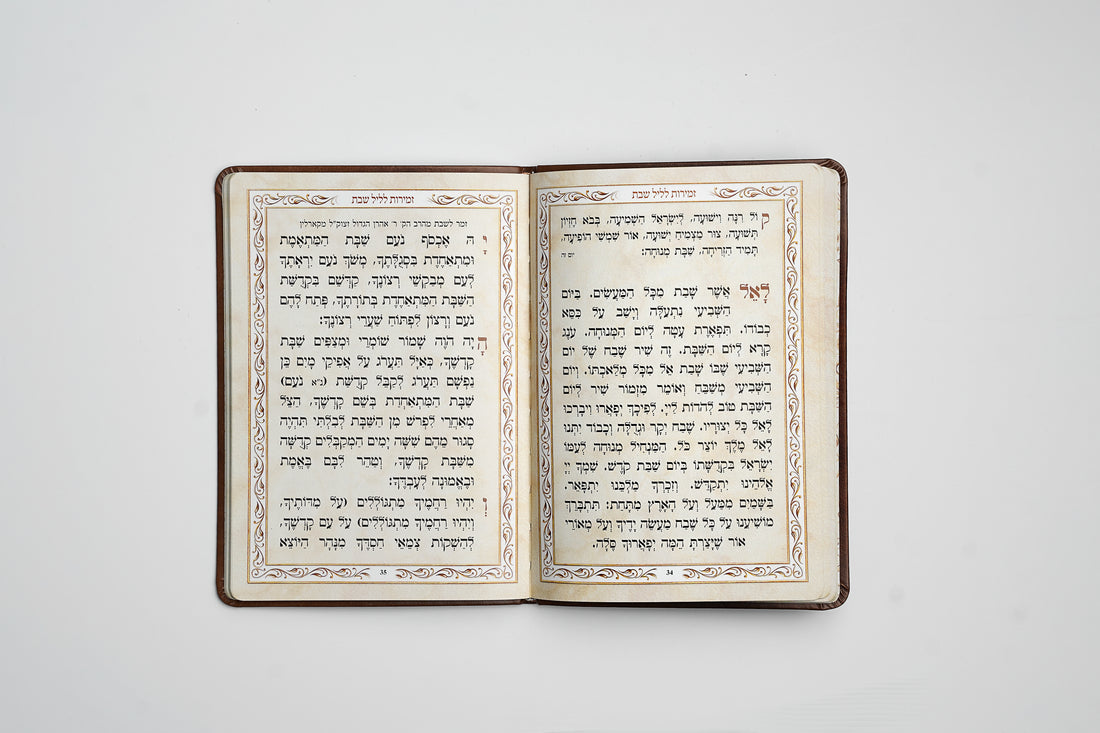 זמירות לליל שבת
קוֹל רִנָּה וִישׁוּעָה, לְיִשְׂרָאֵל הַשְׁמִיעָה, בְּבֹא חֶזְיוֹן
תְּשׁוּעָה, צוּר מַצְמִיחַ יְשׁוּעָה, אוֹר שִׁמְשִׁי הוֹפִיעָה,
תָּמִיד הַזְרִיחָה, שַׁבַּת מְנוּחָה: יום זה
לָאֵל אֲשֶׁר שָׁבַת מִכָּל הַמַּעֲשִׂים. בַּיּוֹם
הַשְּׁבִיעִי נִתְעַלָּה וְיָשַׁב עַל כִּסֵּא
כְבוֹדוֹ. תִּפְאֶרֶת עָטָה לְיוֹם הַמְּנוּחָה. עֹנֶג
קָרָא לְיוֹם הַשַּׁבָּת. זֶה שִׁיר שֶׁבַח שֶׁל יוֹם
הַשְּׁבִיעִי שֶׁבּוֹ שָׁבַת אֵל מִכָּל מְלַאכְתּוֹ. וְיוֹם
הַשְּׁבִיעִי מְשַׁבֵּחַ וְאוֹמֵר מִזְמוֹר שִׁיר לְיוֹם
הַשַּׁבָּת טוֹב לְהֹדוֹת לַייָ. לְפִיכָךְ יְפָאֲרוּ וִיבָרְכוּ
לָאֵל כָּל יְצוּרָיו. שֶׁבַח יְקָר וּגְדֻלָּה וְכָבוֹד יִתְּנוּ
לָאֵל מֶלֶךְ יוֹצֵר כֹּל. הַמַּנְחִיל מְנוּחָה לְעַמּוֹ
יִשְׂרָאֵל בִּקְדֻשָּׁתוֹ בְּיוֹם שַׁבַּת קֹדֶשׁ. שִׁמְךָ יְיָ
אֱלֹהֵינוּ יִתְקַדַּשׁ. וְזִכְרְךָ מַלְכֵּנוּ יִתְפָּאַר.
בַּשָּׁמַיִם מִמַּעַל וְעַל הָאָרֶץ מִתָּחַת: תִּתְבָּרַךְ
מוֹשִׁיעֵנוּ עַל כָּל שֶׁבַח מַעֲשֵׂה יָדֶיךָ וְעַל מְאוֹרֵי
אוֹר שֶׁיָּצַרְתָּ הֵמָּה יְפָאֲרוּךָ סֶּלָה.
34
זמירות לליל שבת
זמר לשבת מהרב הק׳ ר׳ אהרן הגדול זצוק״ל מקארלין
יָ הּ אֶכְסֹף נֹעַם שַׁבָּת הַמַּתְאֶמֶת
וּמִתְאַחֶדֶת בִּסְגֻלָּתֶךָ, מְשֹׁךְ נֹעַם יִרְאָתֶךָ
לְעַם מְבַקְשֵׁי רְצוֹנֶךָ, קַדְּשֵׁם בִּקְדֻשַּׁת
הַשַּׁבָּת הַמִּתְאַחֶדֶת בְּתוֹרָתֶךָ, פְּתַח לָהֶם
נֹעַם וְרָצוֹן לִפְתּוֹחַ שַׁעֲרֵי רְצוֹנֶךָ:
הָ יָה הֹוֶה שְׁמוֹר שׁוֹמְרֵי וּמְצַפִּים שַׁבַּת
קָדְשֶׁךָ, כְּאַיָּל תַּעֲרֹג עַל אֲפִיקֵי מַיִם כֵּן
נַפְשָׁם תַּעֲרֹג לְקַבֵּל קְדֻשַּׁת (נ״א נֹעַם)
שַׁבָּת הַמִּתְאַחֶדֶת בְּשֵׁם קָדְשֶׁךָ, הַצֵּל
מְאַחֲרֵי לִפְרֹשׁ מִן הַשַּׁבָּת לְבִלְתִּי תִּהְיֶה
סָגוּר מֵהֶם שִׁשָּׁה יָמִים הַמְקַבְּלִים קְדֻשָּׁה
מִשַּׁבַּת קָדְשֶׁךָ, וְטַהֵר לִבָּם בֶּאֱמֶת
וּבֶאֱמוּנָה לְעָבְדֶּךָ:
וְ יִהְיוּ רַחֲמֶיךָ מִתְגּוֹלְלִים (עַל מִדּוֹתֶיךָ,
וְיִהְיוּ רַחֲמֶיךָ מִתְגּוֹלְלִים) עַל עַם קָדְשֶׁךָ,
לְהַשְׁקוֹת צְמֵאֵי חַסְדֶּךָ מִנָּהָר הַיּוֹצֵא
35